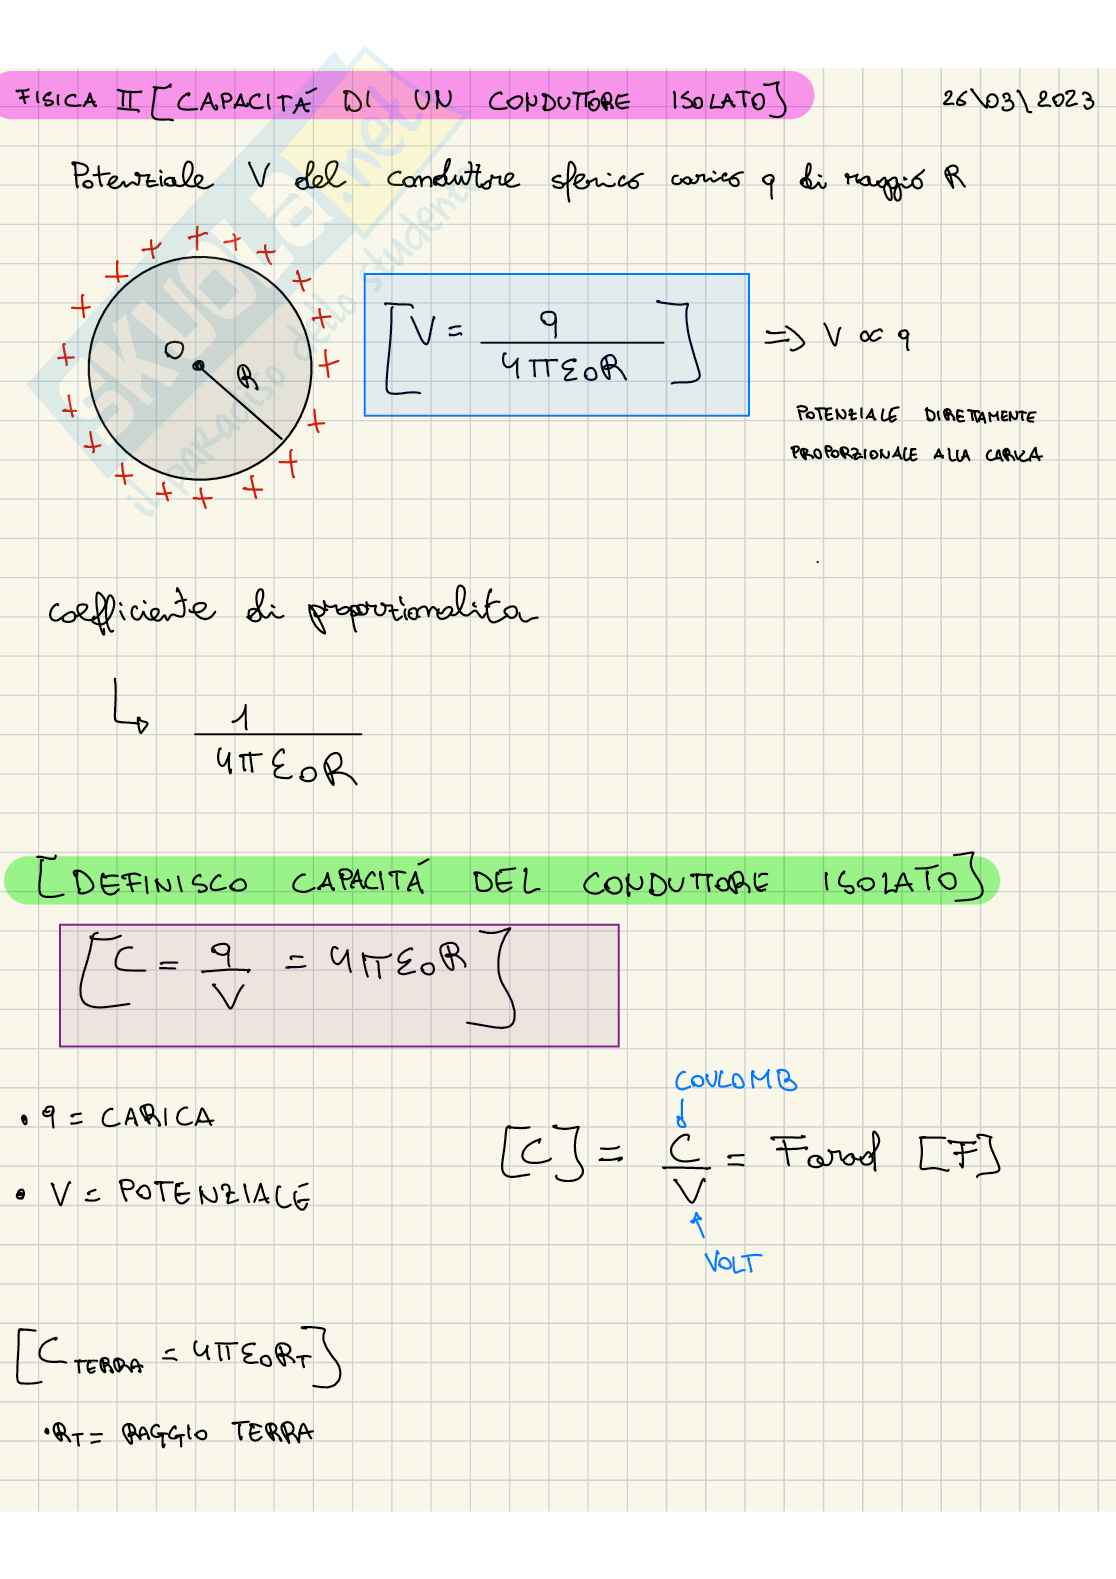 FISICA II [CAPACITÁ DI UN CONDUTTORE ISOLATO] 26\03\2023
Potenziale V del conduttore sferico carico q di raggio R
O
R
[V = q / 4πε₀R] => V ∝ q
POTENZIALE DIRETAMENTE
PROPORZIONALE ALLA CARICA
coefficiente di proporzionalita
↳ 1 / 4πε₀R
[DEFINISCO CAPACITÁ DEL CONDUTTORE ISOLATO]
[C = q / V = 4πε₀R]
COULOMB
• q = CARICA
[C] = C / V = Farad [F]
• V = POTENZIALE
VOLT
[C TERRA = 4πε₀R_T]
• R_T = RAGGIO TERRA
skuola.net
il paradiso dello studente